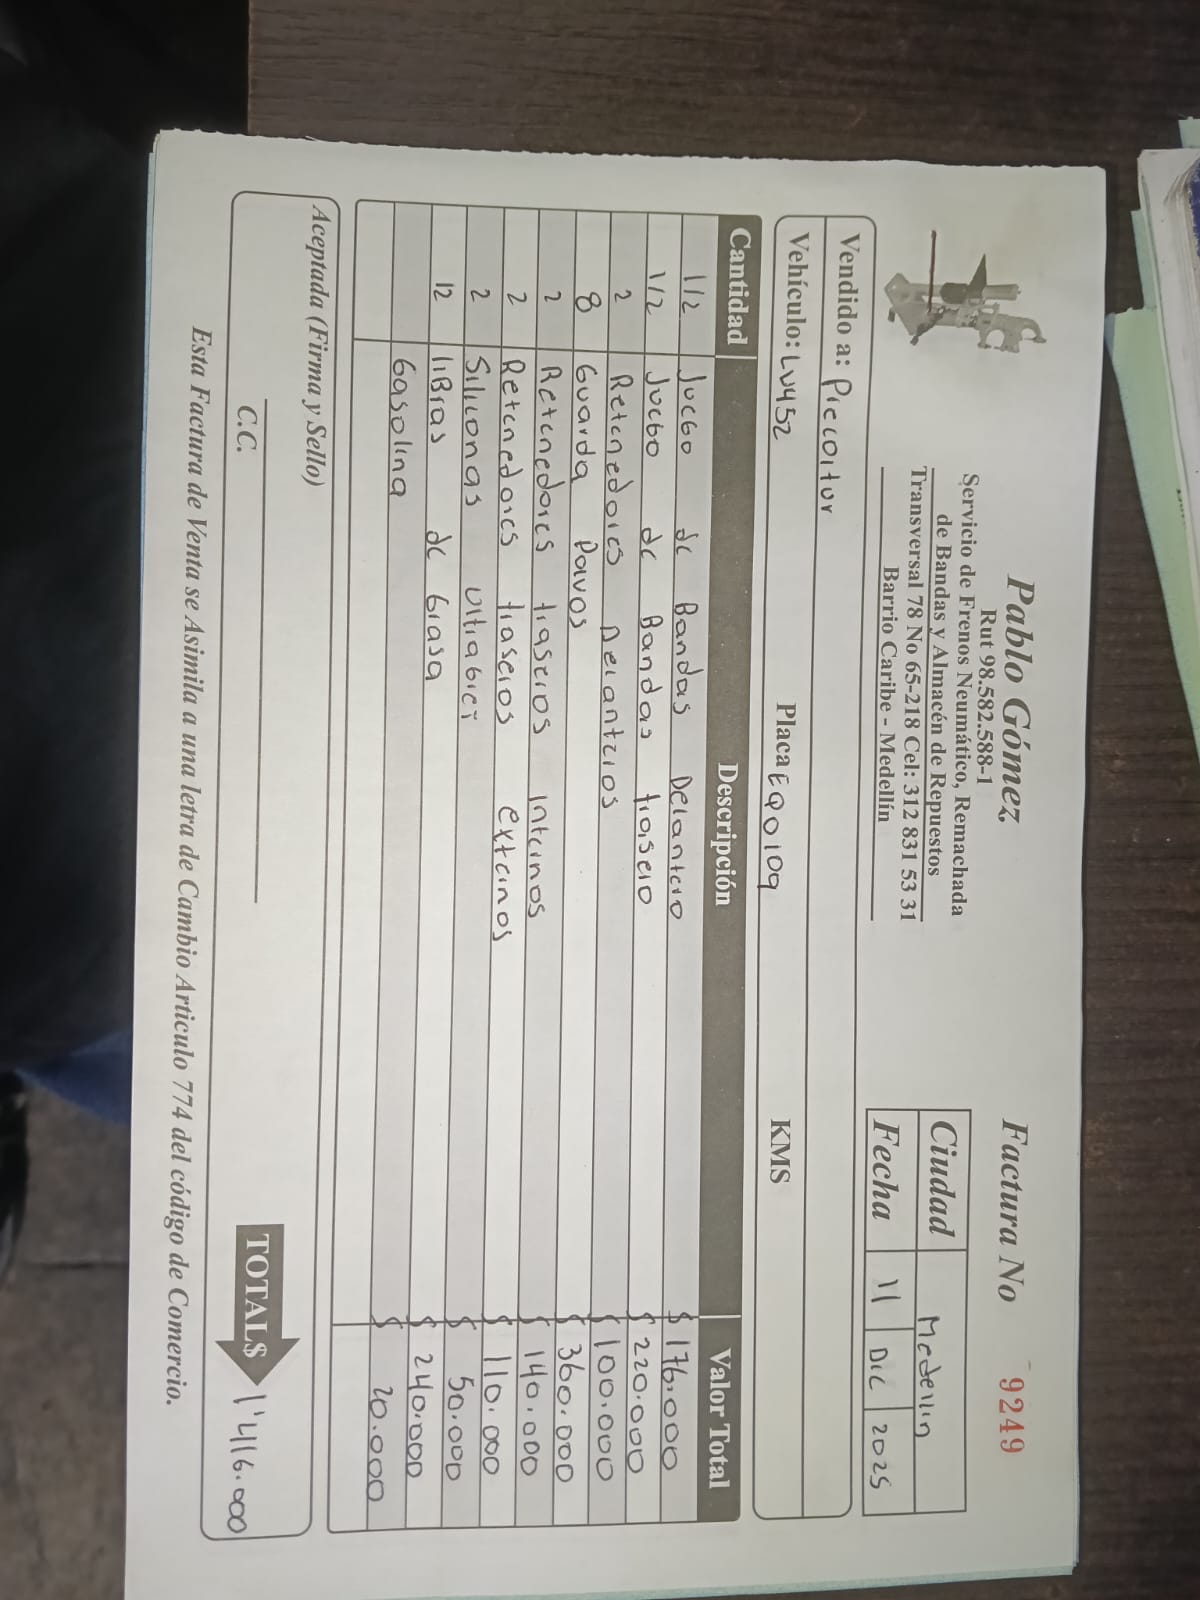 Pablo Gómez
Rut 98.582.588-1
Servicio de Frenos Neumático, Remachada
de Bandas y Almacén de Repuestos
Transversal 78 No 65-218 Cel: 312 831 53 31
Barrio Caribe - Medellín
Factura No 9249
Ciudad Medellin
Fecha 11 DIC 2025
Vendido a: Precoltur
Vehículo: LV452 Placa EQO109 KMS
Cantidad Descripción Valor Total
1/2 Juego de Bandas Delantero $ 176.000
1/2 Juego de Bandas trasero $ 220.000
2 Retenedores Delanteros $ 100.000
8 Guarda Polvos $ 360.000
2 Retenedores traseros internos $ 140.000
2 Retenedores traseros externos $ 110.000
2 Siliconas Ultragrey $ 50.000
12 libras de Grasa $ 240.000
Gasolina $ 20.000
Aceptada (Firma y Sello)
C.C.
TOTAL$ 1'416.000
Esta Factura de Venta se Asimila a una letra de Cambio Articulo 774 del código de Comercio.